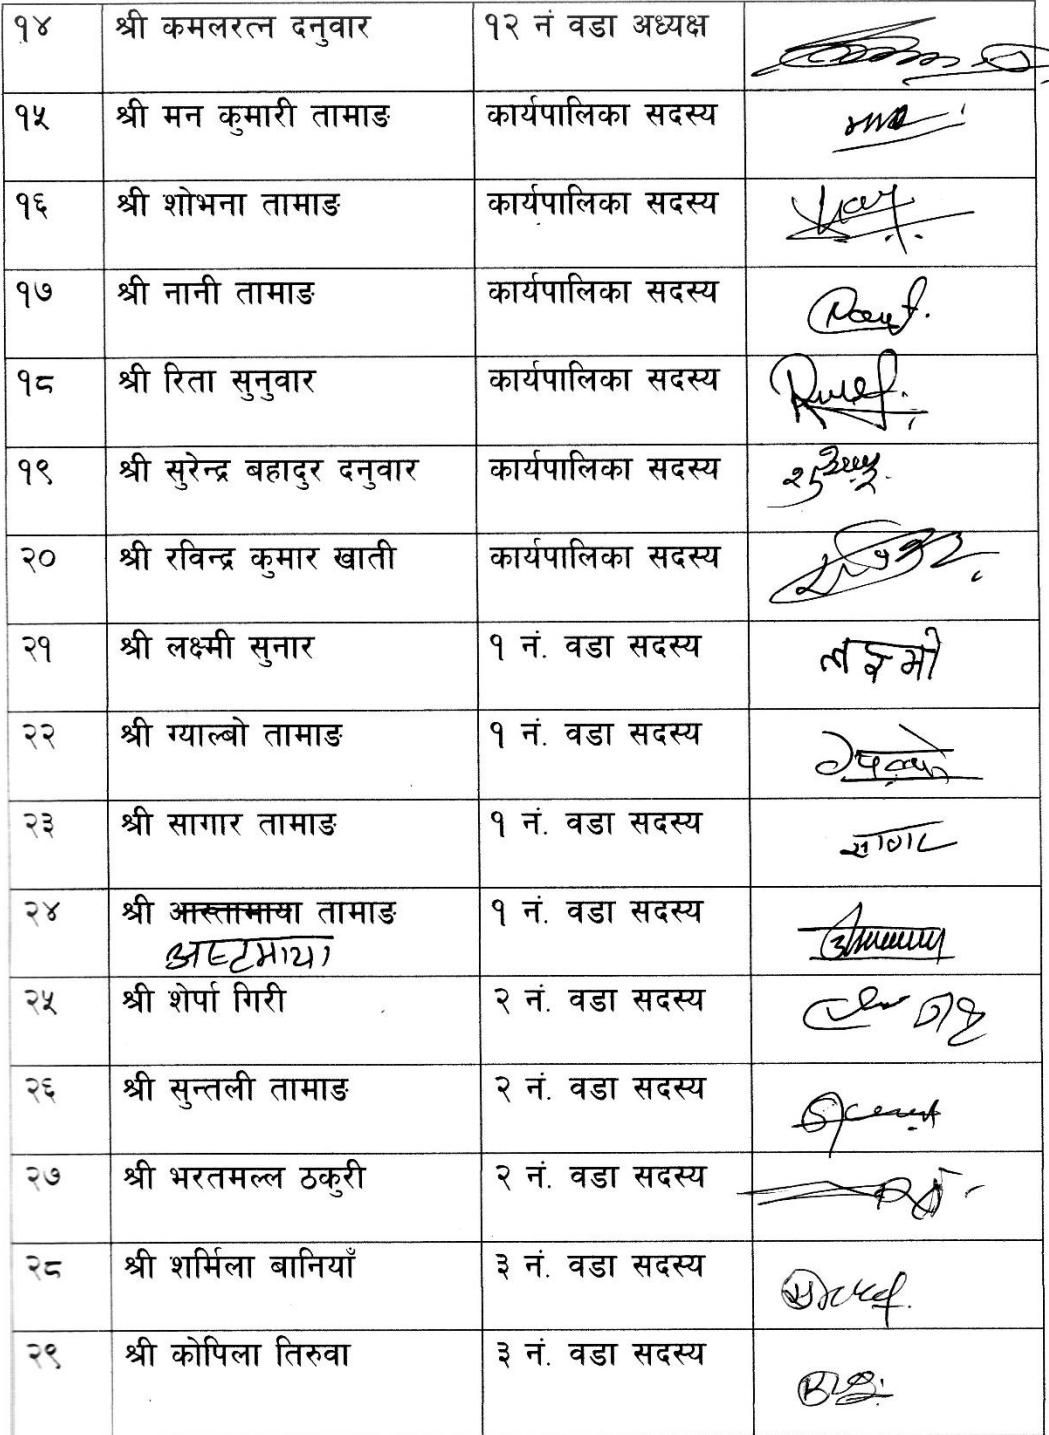 १४ श्री कमलरत्न दनुवार १२ नं वडा अध्यक्ष
१५ श्री मन कुमारी तामाङ कार्यपालिका सदस्य
१६ श्री शोभना तामाङ कार्यपालिका सदस्य
१७ श्री नानी तामाङ कार्यपालिका सदस्य
१८ श्री रिता सुनुवार कार्यपालिका सदस्य
१९ श्री सुरेन्द्र बहादुर दनुवार कार्यपालिका सदस्य
२० श्री रविन्द्र कुमार खाती कार्यपालिका सदस्य
२१ श्री लक्ष्मी सुनार १ नं. वडा सदस्य लक्ष्मी
२२ श्री ग्याल्बो तामाङ १ नं. वडा सदस्य
२३ श्री सागार तामाङ १ नं. वडा सदस्य सागर
२४ श्री आस्तामाया तामाङ १ नं. वडा सदस्य
अष्टमाया
२५ श्री शेर्पा गिरी २ नं. वडा सदस्य
२६ श्री सुन्तली तामाङ २ नं. वडा सदस्य
२७ श्री भरतमल्ल ठकुरी २ नं. वडा सदस्य
२८ श्री शर्मिला बानियाँ ३ नं. वडा सदस्य
२९ श्री कोपिला तिरुवा ३ नं. वडा सदस्य